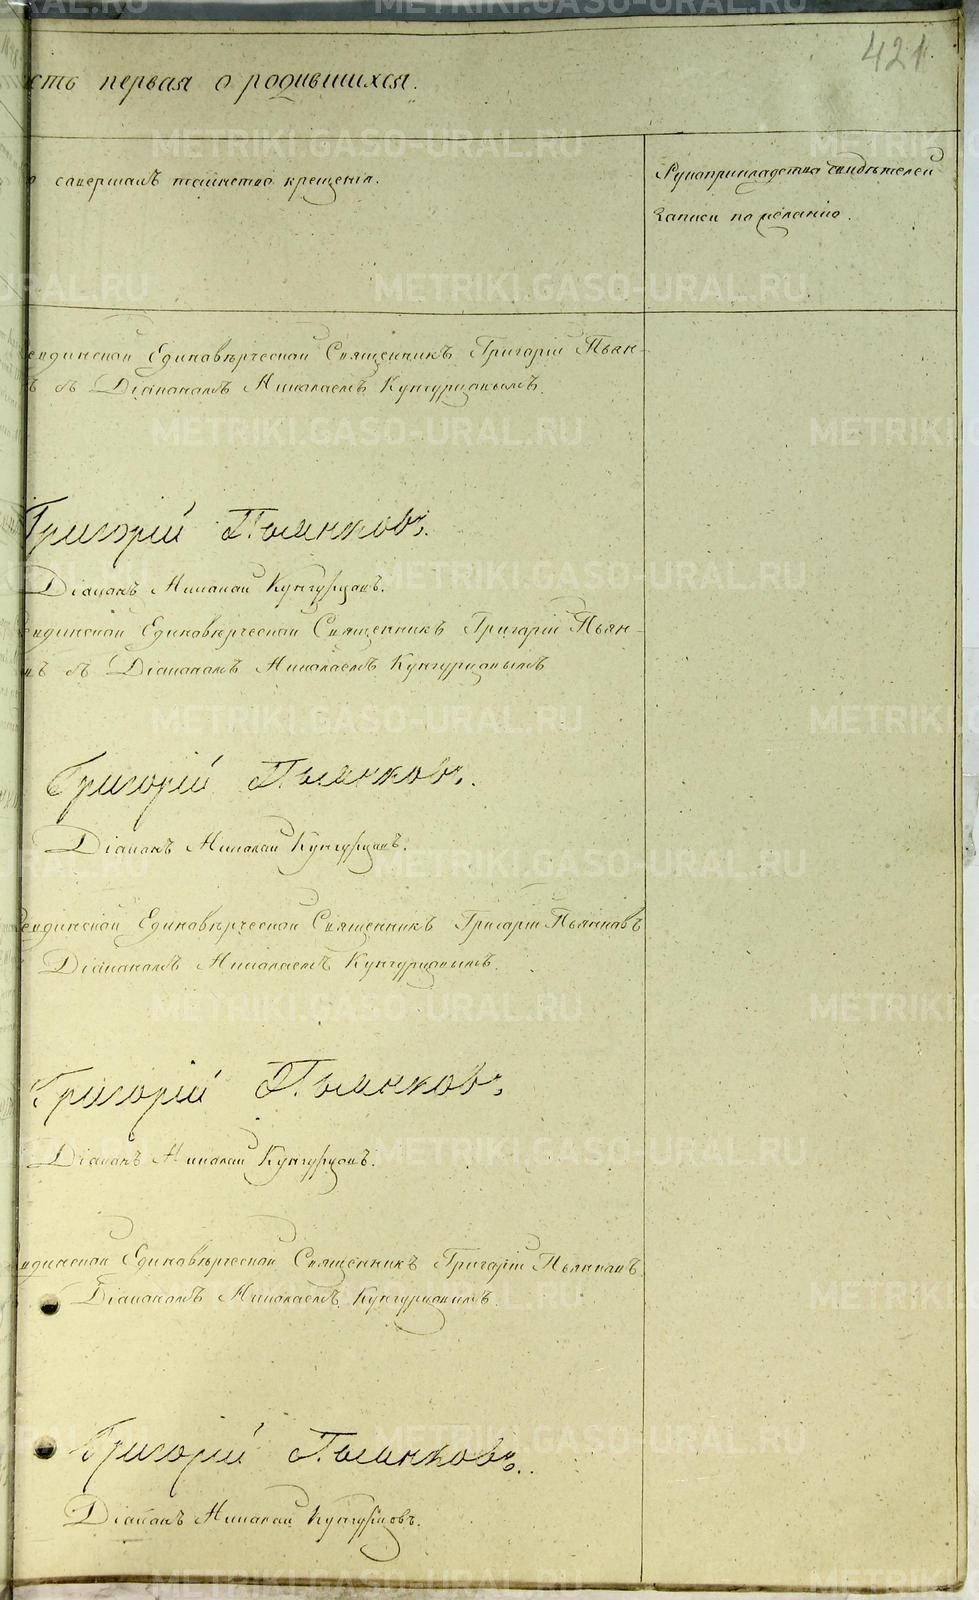 421
сть первая о родившихся.
совершалъ таинство крещенія.
Рукоприкладство свидѣтелей
записи по желанію.
ендинской Единовѣрческой Священникъ Григорій Пьян-
ъ съ Діакономъ Николаемъ Кунгурцовымъ.
Григорій Пьянковъ.
Діаконъ Николай Кунгурцовъ.
ендинской Единовѣрческой Священникъ Григорій Пьян-
въ съ Діакономъ Николаемъ Кунгурцовымъ
Григорій Пьянковъ.
Діаконъ Николай Кунгурцовъ.
ендинской Единовѣрческой Священникъ Григорій Пьянковъ
Діакономъ Николаемъ Кунгурцовымъ.
Григорій Пьянковъ.
Діаконъ Николай Кунгурцовъ.
ендинской Единовѣрческой Священникъ Григорій Пьянковъ
Діакономъ Николаемъ Кунгурцовымъ.
Григорій Пьянковъ.
Діаконъ Николай Кунгурцовъ.
METRIKI.GASO-URAL.RU